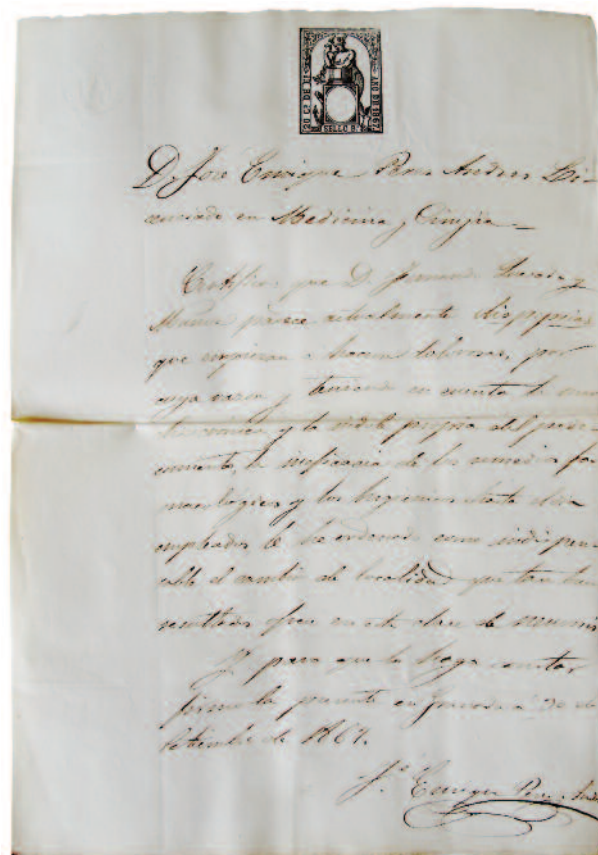 20 Cs DE Eº
SELLO 9º
AÑO DE 1867
D. Jose Enrique Perez Andres Li-
cenciado en Medicina y Cirujia =
Certifico que D. y
padece actualmente dispepsias
que empiezan a hacerse dolorosas, por
cuya razon y teniendo en cuenta la
y la indole propia del pade-
cimiento, la ineficacia de los remedios far-
macologicos y los higienicos hasta el dia
empleados le he ordenado como indispen-
sable el cambio de localidad que tan buenos
resultados ofrece en esta clase de neurosis
Y para que lo haga constar
firmo la presente en Granada a 30 de
Setiembre de 1867.
J. Enrique Perez Andres